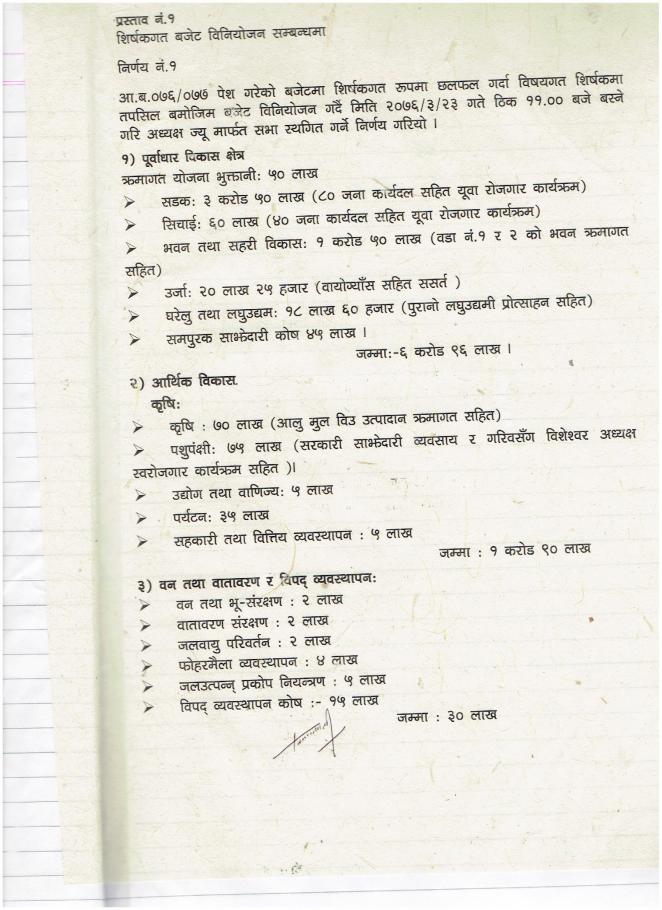 प्रस्ताव नं.१
शिर्षकगत बजेट विनियोजन सम्बन्धमा
निर्णय नं.१
आ.ब.०७६/०७७ पेश गरेको बजेटमा शिर्षकगत रुपमा छलफल गर्दा विषयगत शिर्षकमा
तपसिल बमोजिम बजेट विनियोजन गर्दै मिति २०७६/३/२३ गते ठिक ११.०० बजे बस्ने
गरि अध्यक्ष ज्यू मार्फत सभा स्थगित गर्ने निर्णय गरियो ।
१) पूर्वाधार विकास क्षेत्र
क्रमागत योजना भुक्तानी: ५० लाख
➢ सडक: ३ करोड ५० लाख (८० जना कार्यदल सहित यूवा रोजगार कार्यक्रम)
➢ सिचाई: ६० लाख (४० जना कार्यदल सहित यूवा रोजगार कार्यक्रम)
➢ भवन तथा सहरी विकास: १ करोड ५० लाख (वडा नं.१ र २ को भवन क्रमागत
सहित)
➢ उर्जा: २० लाख २५ हजार (वायोग्याँस सहित ससर्त )
➢ घरेलु तथा लघुउद्यम: १८ लाख ६० हजार (पुरानो लघुउद्यमी प्रोत्साहन सहित)
➢ समपुरक साझेदारी कोष ४५ लाख ।
जम्मा:-६ करोड ९६ लाख ।
२) आर्थिक विकास
कृषि:
➢ कृषि : ७० लाख (आलु मुल विउ उत्पादान क्रमागत सहित)
➢ पशुपंक्षी: ७५ लाख (सरकारी साझेदारी व्यवसाय र गरिवसँग विशेश्वर अध्यक्ष
स्वरोजगार कार्यक्रम सहित )।
➢ उद्योग तथा वाणिज्य: ५ लाख
➢ पर्यटन: ३५ लाख
➢ सहकारी तथा वित्तिय व्यवस्थापन : ५ लाख
जम्मा : १ करोड ९० लाख
३) वन तथा वातावरण र विपद् व्यवस्थापन:
➢ वन तथा भू-संरक्षण : २ लाख
➢ वातावरण संरक्षण : २ लाख
➢ जलवायु परिवर्तन : २ लाख
➢ फोहरमैला व्यवस्थापन : ४ लाख
➢ जलउत्पन्न् प्रकोप नियन्त्रण : ५ लाख
➢ विपद् व्यवस्थापन कोष :- १५ लाख
जम्मा : ३० लाख